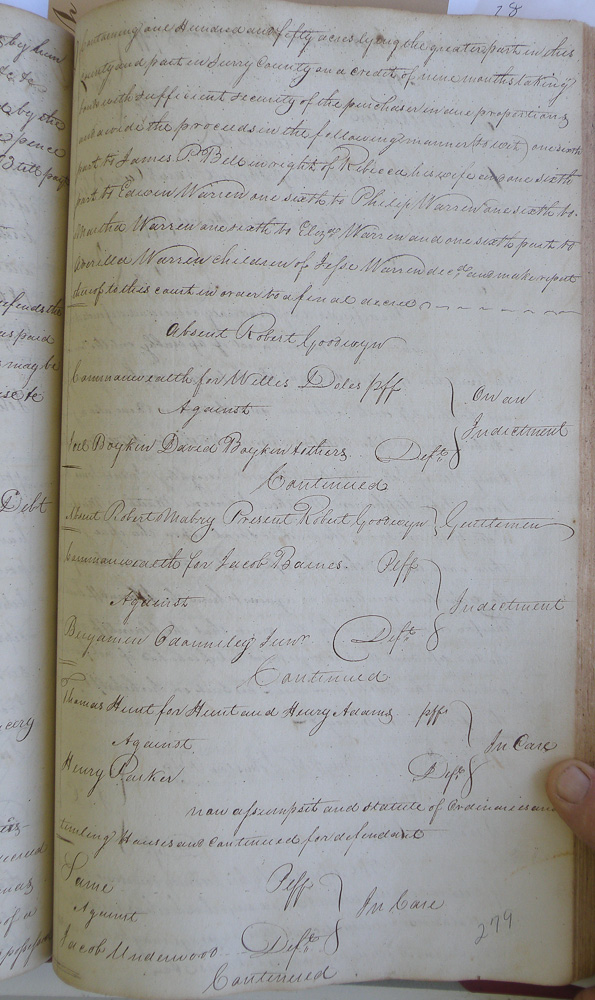 28
containing one Hundred and fifty acres lying the greater part in this
County and part in Surry County on a Credit of nine months taking
bonds with sufficient security of the purchaser in due proportions
and divide the proceeds in the following manner (to wit) one sixth
part to James P. Bell in right of Rebecca his wife and one sixth
part to Edwin Warren one sixth to Philip Warren one sixth to
Martha Warren one sixth to Elizᵃ Warren and one sixth part to
Averilla Warren children of Jesse Warren decᵈ and make report
thereof to this court in order to a final decree
Absent Robert Goodwyn
Commonwealth for Willis Doles pff
Against
Joel Boykin David Boykin & others Defᵗˢ
On an
Indictment
Continued
Absent Robert Mabry Present Robert Goodwyn } Gentlemen
Commonwealth for Jacob Barnes. Plff
Against
Benjamin Junʳ Defᵗ
Indictment
Continued
Thomas Hunt for Hunt and Henry Adams pff
Against
Henry Parker. Defᵗ
In Case
non assumpsit and statute of Ordinaries and
tipling Houses and Continued for defendant
Same Plff
Against
Jacob Underwood Defᵗ
In Case
Continued
279
by him
&c &c
d by the
pence
till pay
efends the
as paid
may be
use &c
Debt
cery
as
of a